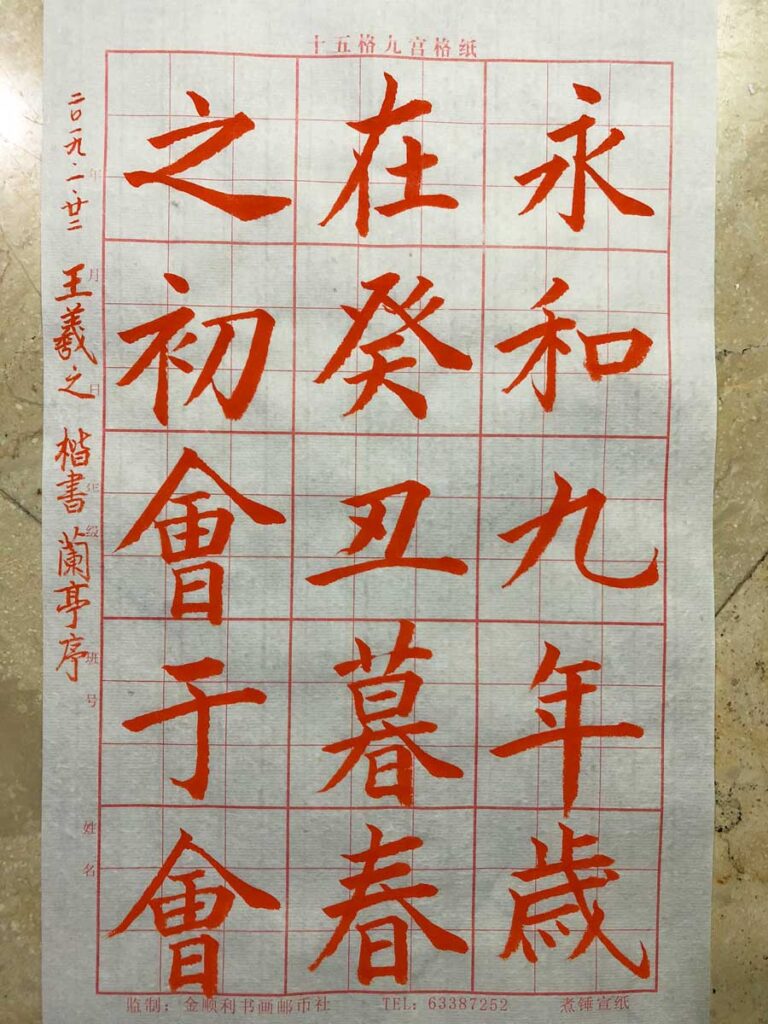 十五格九宫格纸
永和九年歲
在癸丑暮春
之初會于會
二〇一九.一.廿二 王羲之 楷書 蘭亭序
年 月 日
年级 班 号
姓名
监制：金顺利书画邮币社 TEL: 63387252 煮锤宣纸